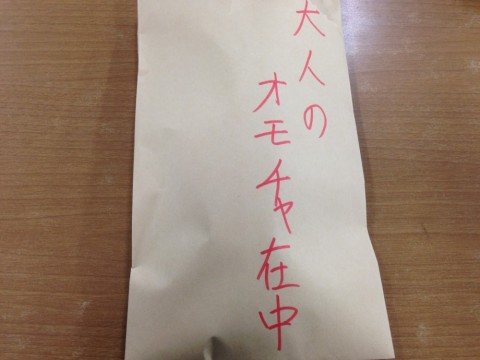 大人の
オモチャ在中